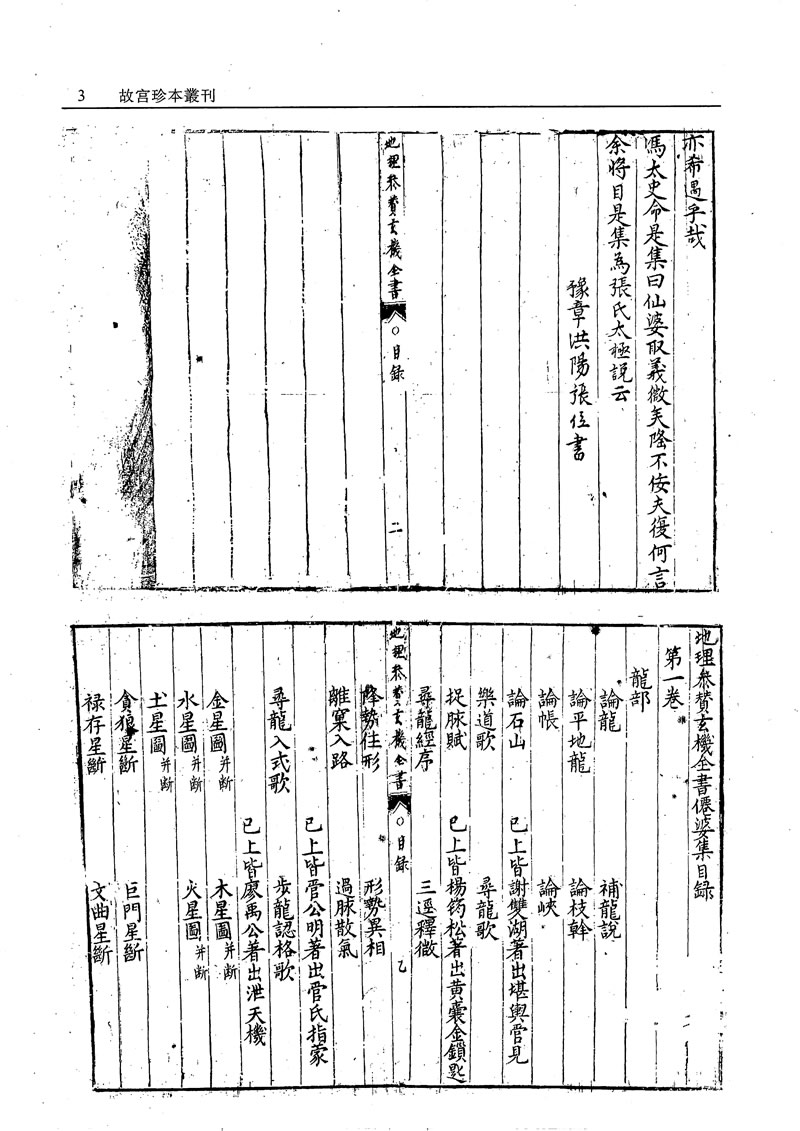 3 故宮珍本叢刊
亦希遇乎哉
馮太史命是集曰仙婆取義微矣隆不佞夫復何言
余將目是集為張氏太極說云
豫章洪陽張位書
地理參贊玄機全書 〇目錄 二
地理參贊玄機全書僊婆集目錄
第一卷
龍部
論龍 補龍說
論平地龍 論枝幹
論帳 論峽
論石山 已上皆謝雙湖著出堪輿管見
樂道歌 尋龍歌
捉脉賦 已上皆楊筠松著出黃囊金鎖匙
尋龍經序 三逕釋微
地理參贊玄機全書 〇目錄 乙
降勢住形 形勢異相
離窠入路 過脉散氣
已上皆管公明著出管氏指蒙
尋龍入式歌 步龍認格歌
已上皆廖禹公著出泄天機
金星圖并斷 木星圖并斷
水星圖并斷 火星圖并斷
土星圖并斷
貪狼星斷 巨門星斷
祿存星斷 文曲星斷